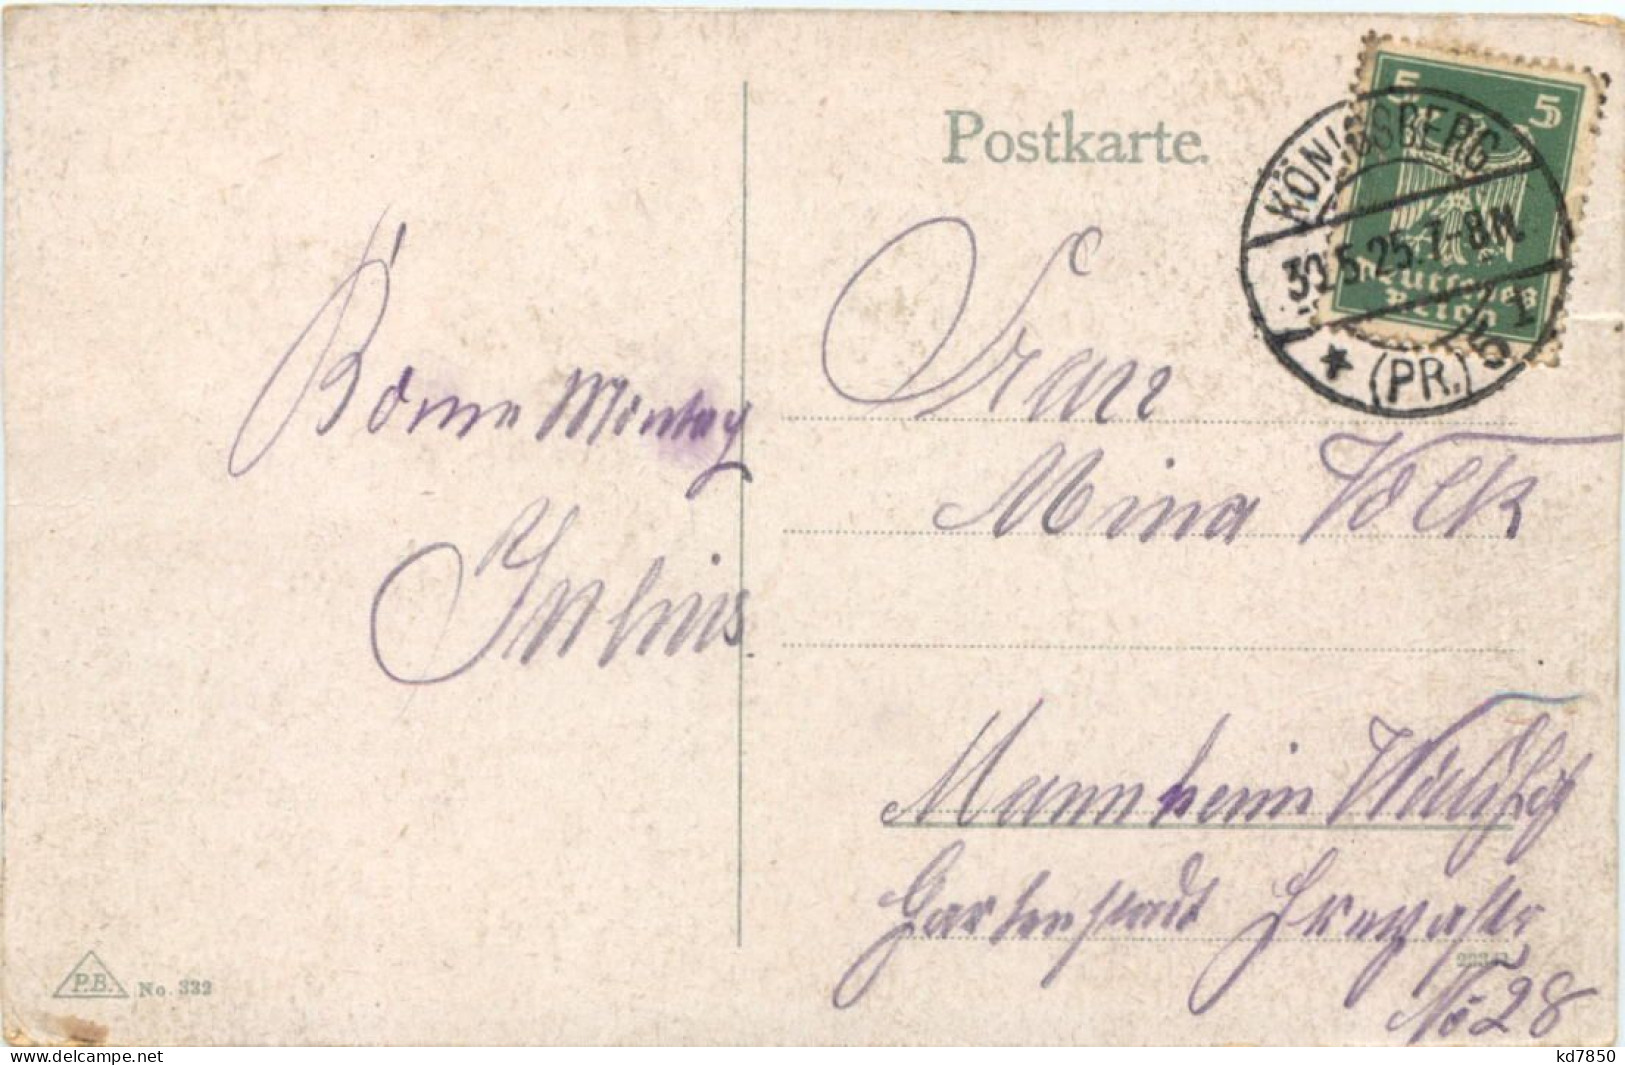 Postkarte.
5 5
Deutsches
Reich
KÖNIGSBERG
30.5.25.7-8N.
* (PR.) 5 I
Komme Montag
Julius
Frau
Mina Volk
Mannheim Waldhof
Gartenstadt
No 28
P.B. No. 332
kd7850